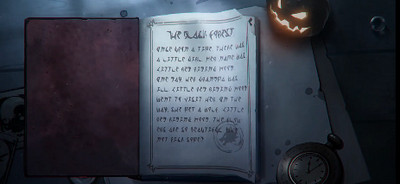 THE BLACK FOREST
ONCE UPON A TIME THERE WAS
A LITTLE GIRL HER NAME WAS
LITTLE RED RIDING HOOD
ONE DAY HER GRANDMA WAS
ILL LITTLE RED RIDING HOOD
WENT TO VISIT HER ON THE
WAY SHE MET A WOLF LITTLE
RED RIDING HOOD THE
ARE SO BEAUTIFUL